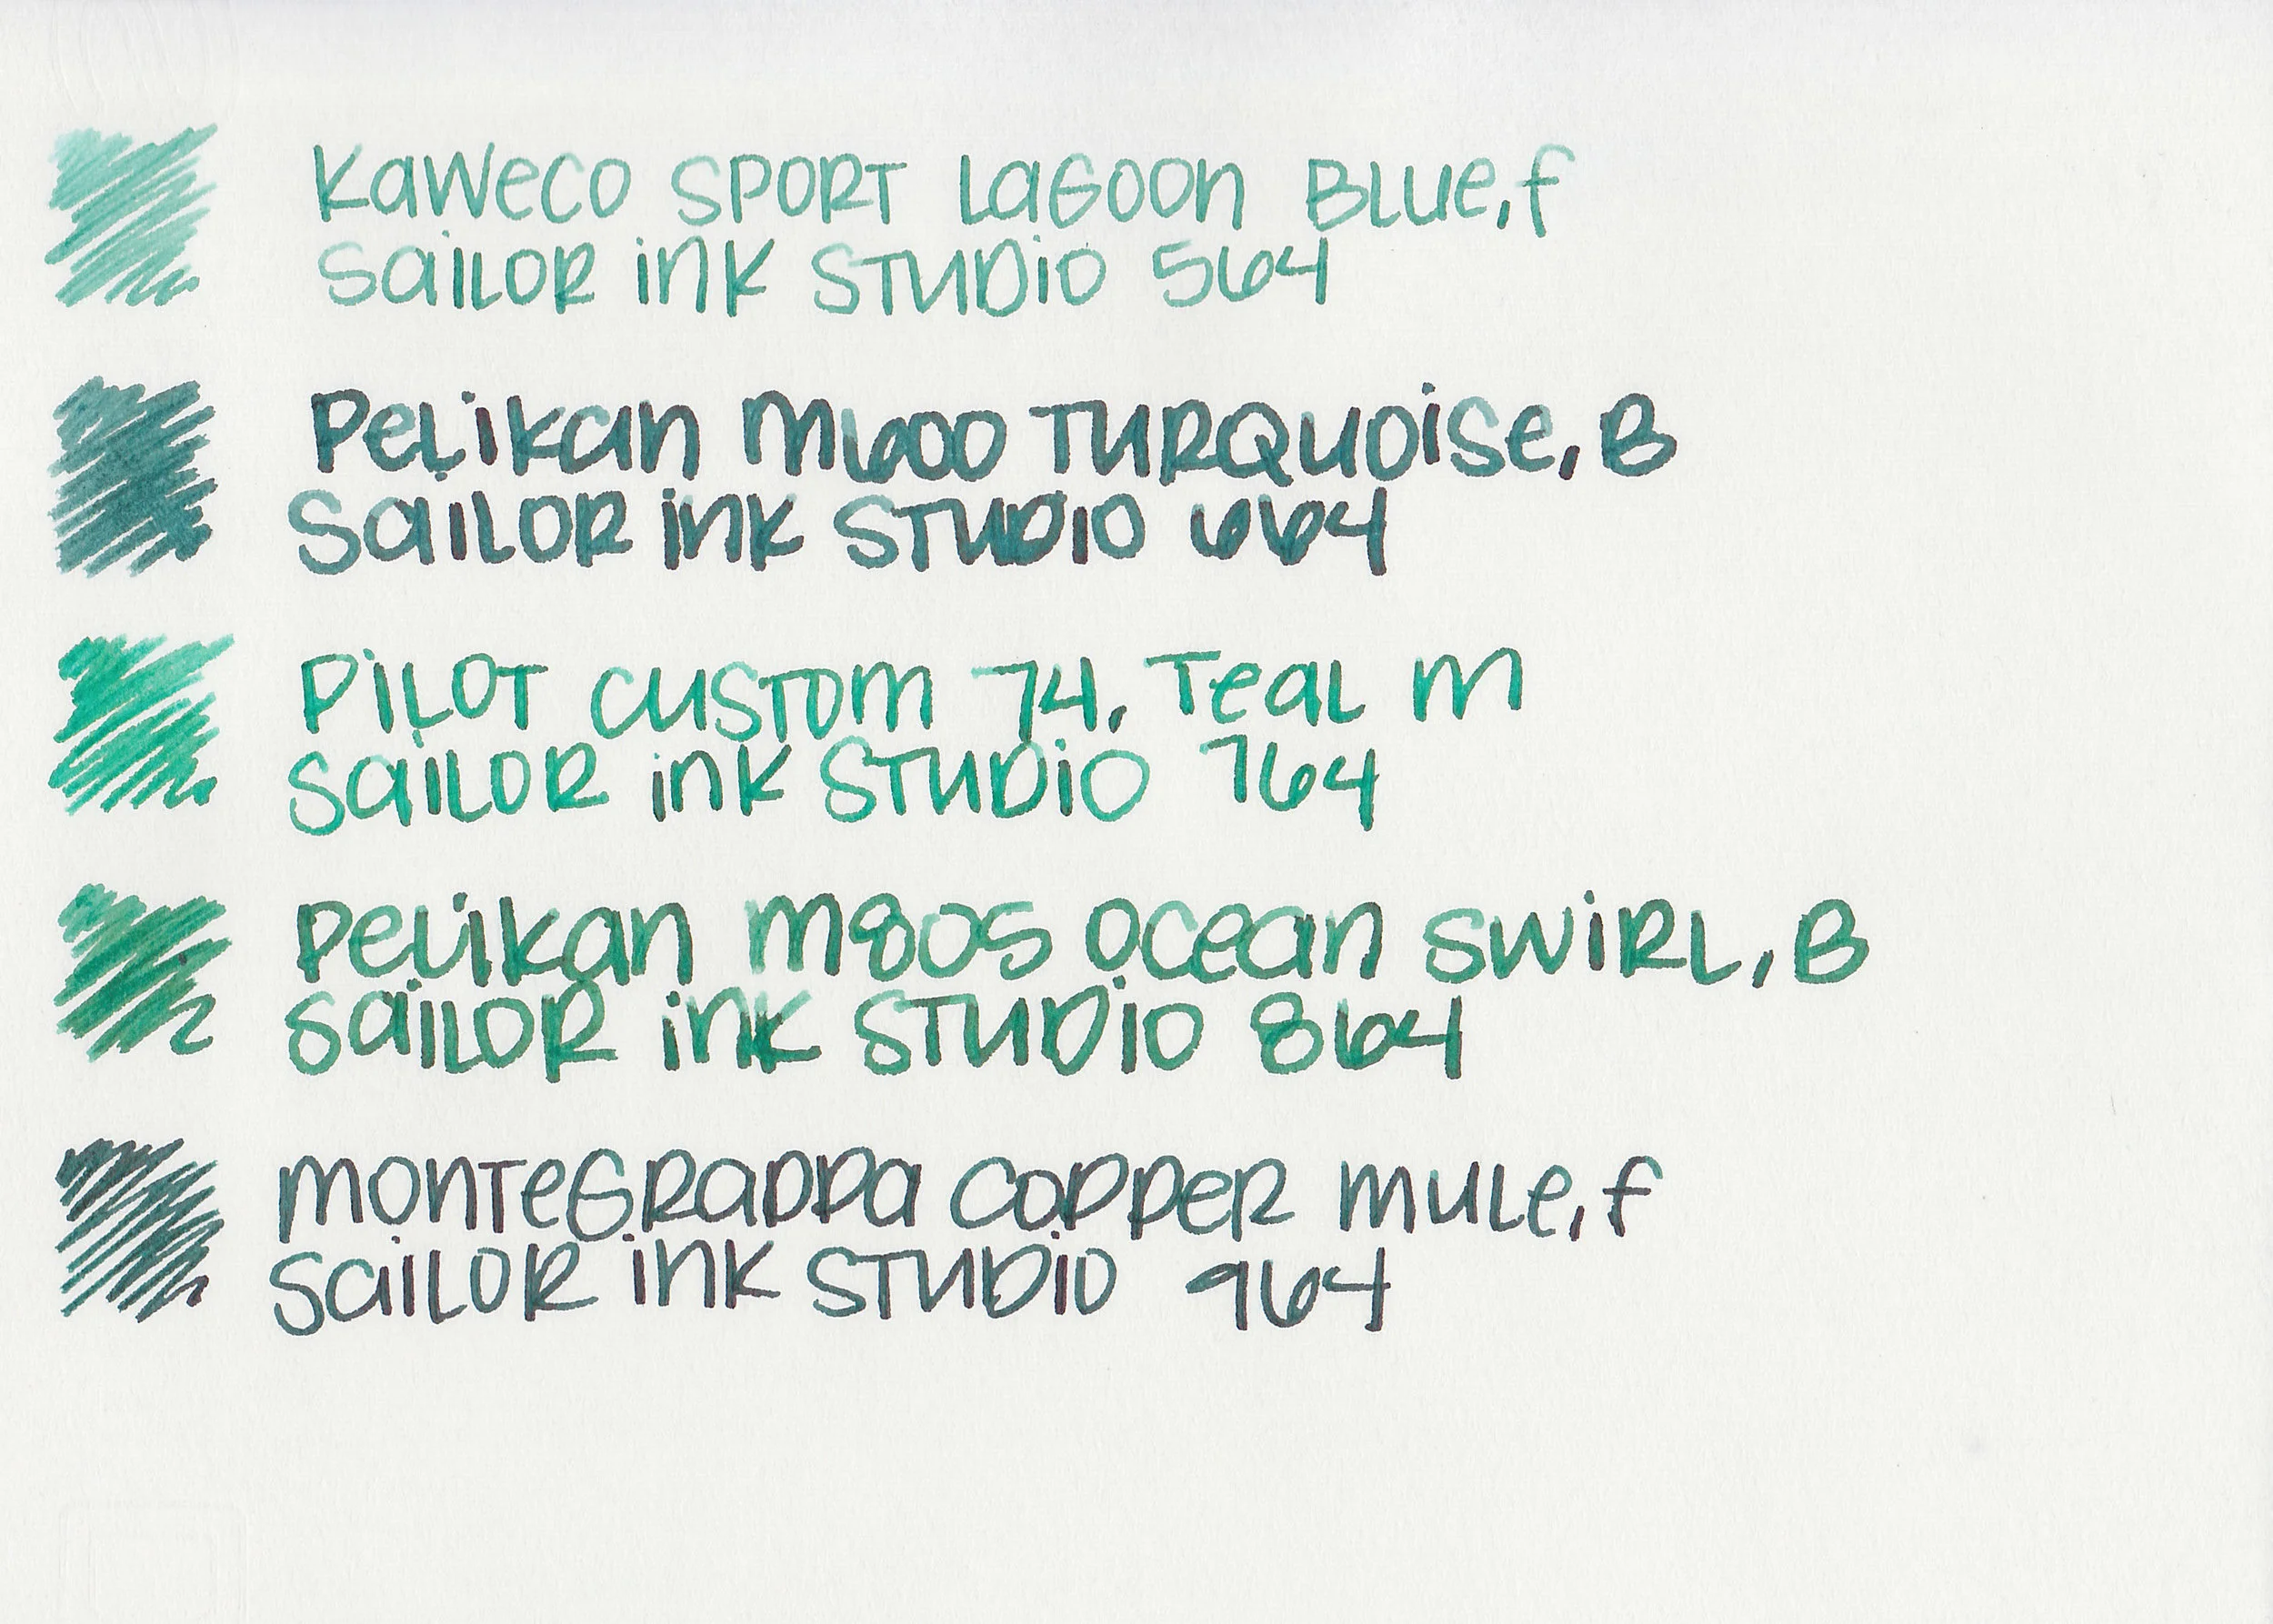 Kaweco Sport Lagoon Blue, f
Sailor Ink Studio 564
Pelikan M600 Turquoise, B
Sailor Ink Studio 664
Pilot Custom 74, Teal M
Sailor Ink Studio 764
Pelikan M805 Ocean Swirl, B
Sailor Ink Studio 864
Montegrappa Copper Mule, f
Sailor Ink Studio 964